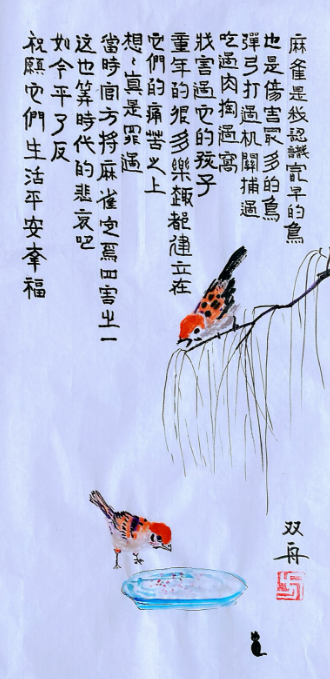 麻雀是我認識最早的鳥
也是傷害最多的鳥
彈弓打過机關捕過
吃過肉掏過窩
戕害過它的孩子
童年的很多樂趣都建立在
它們的痛苦之上
想〻真是罪過
當時官方将麻雀定爲四害之一
这也算時代的悲哀吧
如今平了反
祝願它們生活平安幸福
双舟